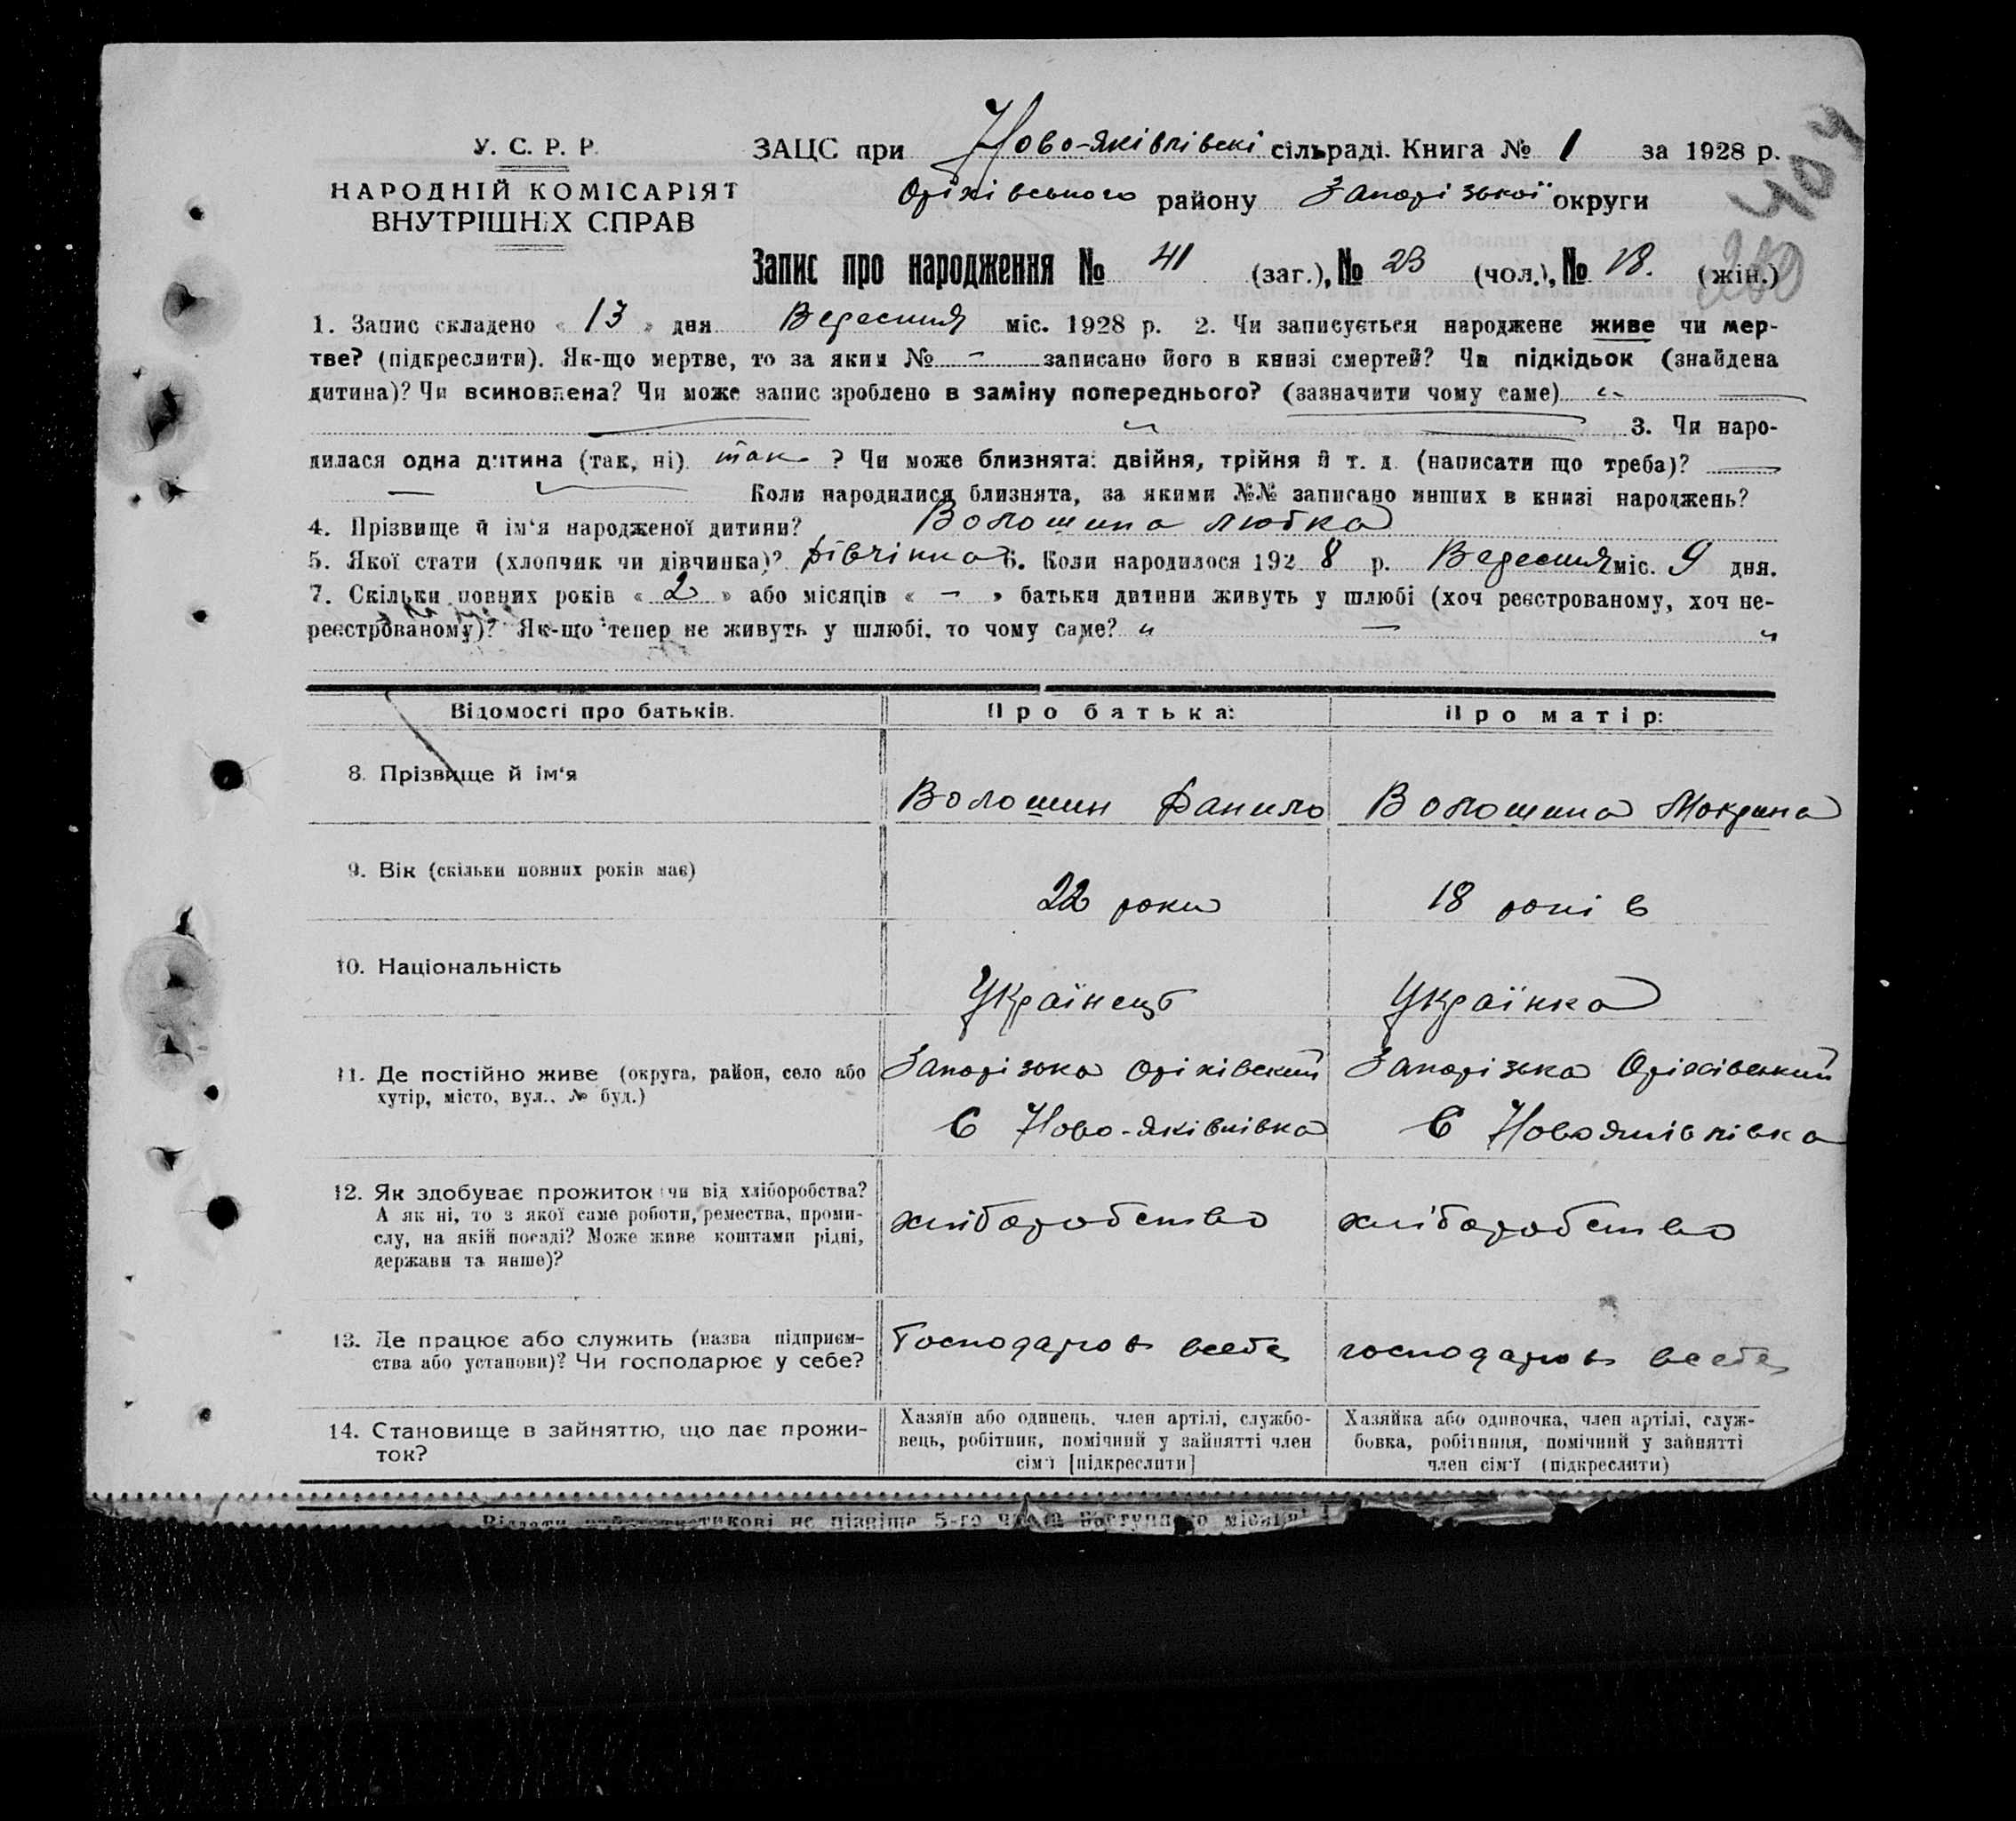 У. С. Р. Р.
НАРОДНІЙ КОМІСАРІЯТ
ВНУТРІШНІХ СПРАВ
ЗАЦС при Ново-Яківлівскі сільраді. Книга № 1 за 1928 р.
Оріхівського району Запорізької округи
404
Запис про народження № 41 (заг.), № 23 (чол.), № 18. (жін.)
1. Запис складено « 13 » дня Вересния міс. 1928 р. 2. Чи записується народжене живе чи мер-
тве? (підкреслити). Як-що мертве, то за яким № - записано його в книзі смертей? Чи підкідьок (знайдена
дитина)? Чи всиновлена? Чи може запис зроблено в заміну попереднього? (зазначити чому саме)
3. Чи наро-
дилася одна дитина (так, ні) так ? Чи може близнята: двійня, трійня й т. д. (написати що треба)? —
— Коли народилися близнята, за якими №№ записано инших в книзі народжень?
4. Прізвище й ім'я народженої дитини? Волошина Любка
5. Якої стати (хлопчик чи дівчинка)? Дівчінка 6. Коли народилося 192 8 р. Вересния міс. 9 дня.
7. Скільки повних років « 2 » або місяців « - » батьки дитини живуть у шлюбі (хоч реєстрованому, хоч не-
реєстрованому)? Як-що тепер не живуть у шлюбі, то чому саме? „ — "
Відомості про батьків. Про батька: Про матір:
8. Прізвище й ім'я Волошин Данило Волошина Мокрина
9. Вік (скільки повних років має) 22 роки 18 років
10. Національність Українець Українка
11. Де постійно живе (округа, район, село або Запорізька Оріхівский Запорізька Оріхівський
хутір, місто, вул., № буд.) С Ново-Яківлівка С Новояківлівка
12. Як здобуває прожиток (чи від хліборобства?
А як ні, то з якої саме роботи, ремества, проми- хліборобство хліборобство
слу, на якій посаді? Може живе коштами рідні,
держави та инше)?
13. Де працює або служить (назва підприєм- Господарює всебе господарює всебе
ства або установи)? Чи господарює у себе?
14. Становище в зайняттю, що дає прожи-
ток?
Хазяїн або одинець, член артілі, службо-
вець, робітник, помічний у зайнятті член
сім'ї [підкреслити]
Хазяйка або одиночка, член артілі, служ-
бовка, робітниця, помічний у зайнятті
член сім'ї (підкреслити)
не пізніше 5-го місяця